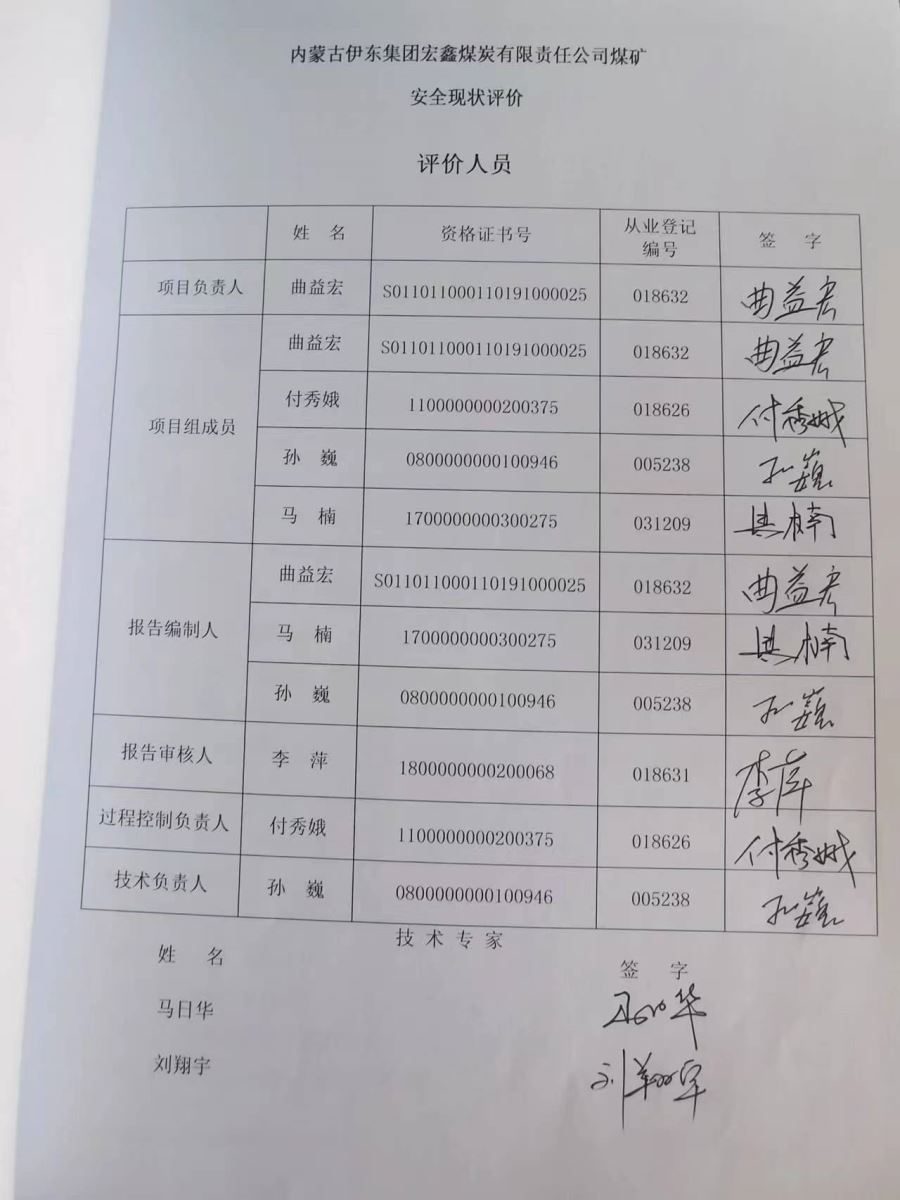 内蒙古伊东集团宏鑫煤炭有限责任公司煤矿
安全现状评价
评价人员
姓 名 资格证书号 从业登记编号 签 字
项目负责人 曲益宏 S011011000110191000025 018632 曲益宏
项目组成员 曲益宏 S011011000110191000025 018632 曲益宏
付秀娥 1100000000200375 018626 付秀娥
孙 巍 0800000000100946 005238 孙巍
马 楠 1700000000300275 031209 马楠
报告编制人 曲益宏 S011011000110191000025 018632 曲益宏
马 楠 1700000000300275 031209 马楠
孙 巍 0800000000100946 005238 孙巍
报告审核人 李 萍 1800000000200068 018631 李萍
过程控制负责人 付秀娥 1100000000200375 018626 付秀娥
技术负责人 孙 巍 0800000000100946 005238 孙巍
技术专家
姓 名 签 字
马日华 马日华
刘翔宇 刘翔宇